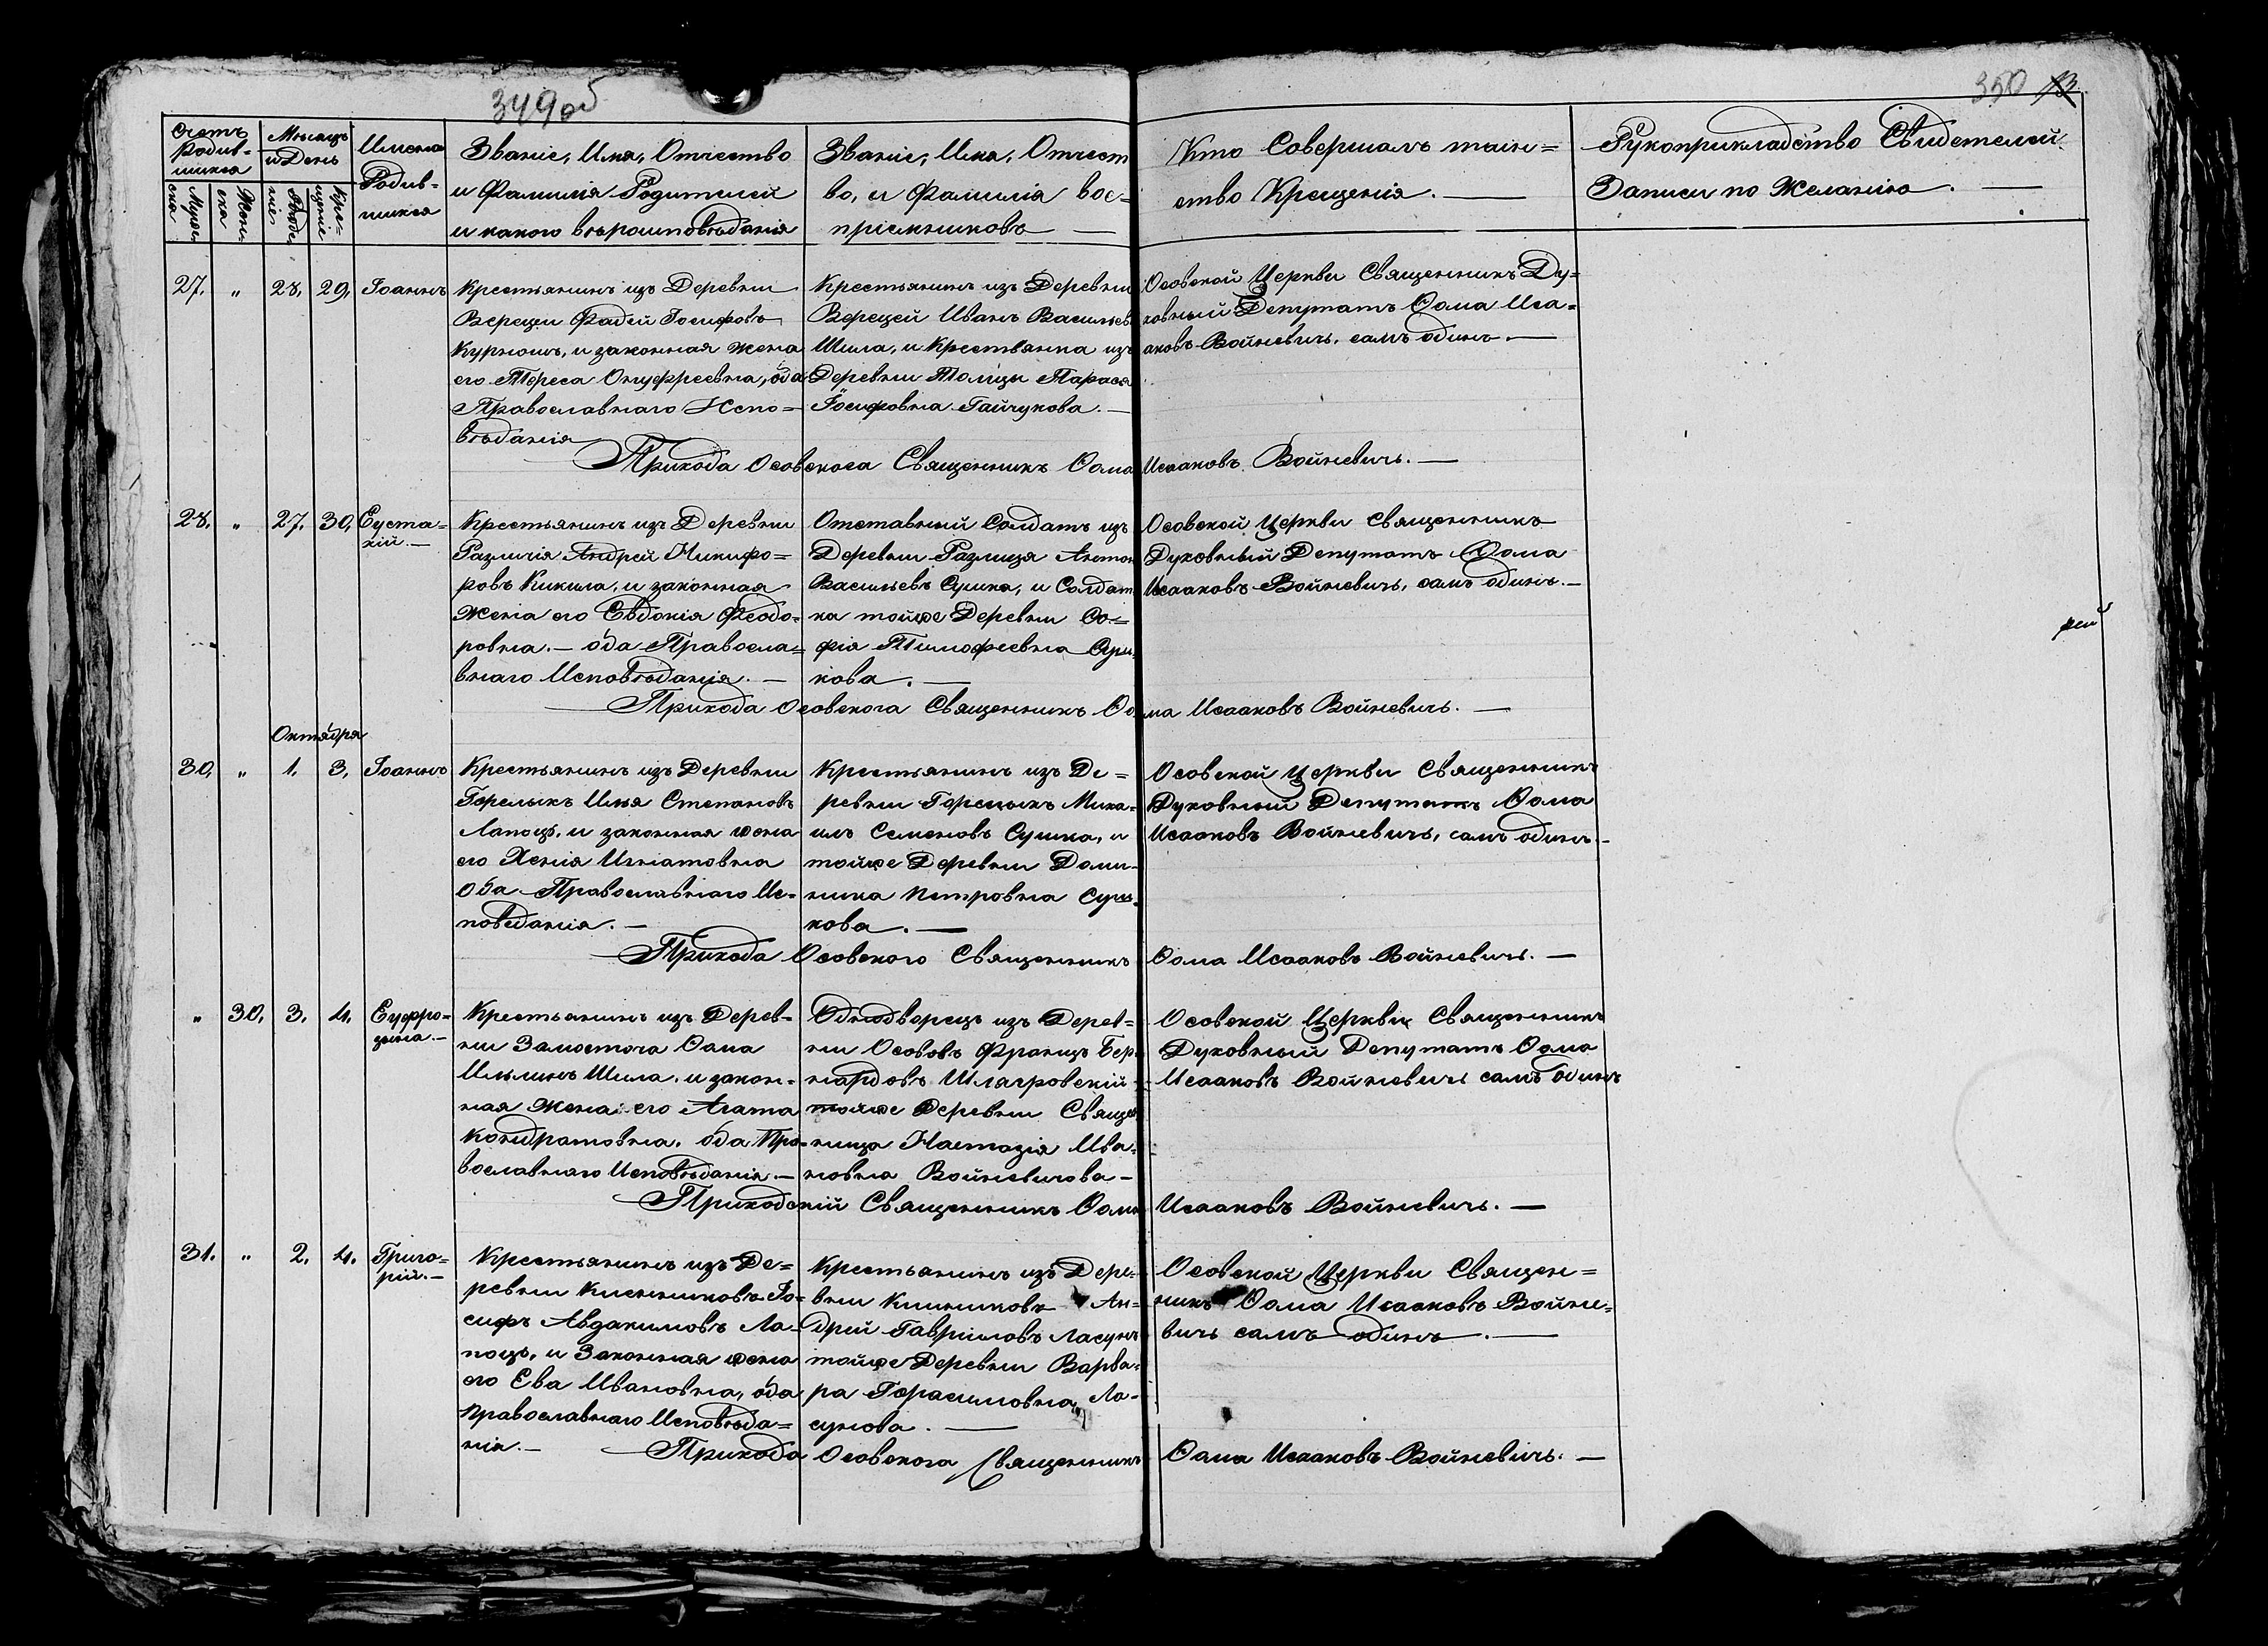 349 об
350
Счетъ родив-шихся
Мужеска
Женска
Мѣсяцъ и День
рожденіе
Крещеніе
Имена Родив-шихся
Званіе, Имя, Отчество
и Фамилія Родителей
и какого вѣроисповѣданія
Званіе, Имя, Отчест
во, и Фамилія вос=
пріемниковъ —
Кто Совершалъ таин=
ство Крещенія. —
Рукоприкладство Свидетелей
Записи по Желанію. —
27. " 28. 29. Іоаннъ
Крестьянинъ изъ Деревни
Верещи Фадій Іосифовъ
Курношъ, и законная жена
его Тереса Онуфреевна, оба
Православнаго Испо=
вѣданія
Крестьянинъ изъ Деревни
Верещей Иванъ Васильевъ
Шила, и Крестьянка изъ
Деревни Толицы Парасѳ
Іосифовна Гайчукова. —
Осовской Церкви Священникъ Ду=
ховный Депутатъ Ѳома Иса=
аковъ Войневичь, самъ одинъ. —
Прихода Осовскаго Священникъ Ѳома Исааковъ Войневичь. —
28. " 27. 30. Еуста=
хій. —
Крестьянинъ изъ Деревни
Разлитія Андрей Никифо=
ровъ Кикила, и законная
Жена его Евдокія Феодо=
ровна. — оба Правосла=
внаго Исповѣданія. —
Отставный Солдатъ изъ
Деревни Разлиція Антон
Васильевъ Сушка, и Солдат
ка тойже Деревни Со=
фія Тимофеевна Суш
кова. —
Осовской Церкви Священникъ
Духовный Депутатъ Ѳома
Исааковъ Войневичь, самъ одинъ. —
рей
Прихода Осовскога Священникъ Ѳома Исааковъ Войневичь. —
Октября
30. " 1. 3. Іоаннъ
Крестьянинъ изъ Деревни
Горелыхъ Илья Степановъ
Лапоць, и законная жена
его Хенія Игнатовна
Оба Православнаго Ис-
поведанія. —
Крестьянинъ изъ Де=
ревни Горелыхъ Миха-
илъ Семеновъ Сушка, и
тойже Деревни Доми-
ника Петровна Суш
кова. —
Осовской Церкви Священникъ
Духовный Депутатъ Ѳома
Исааковъ Войневичь, самъ одинъ. —
Прихода Осовскаго Священникъ Ѳома Исааковъ Войневичь. —
" 30. 3. 4. Еуфро=
зина. —
Крестьянинъ изъ Дерев-
ни Замостога Ѳома
Ильинъ Шила, и закон-
ная жена его Агата
Кондратовна, оба Пра-
вославнаго Исповѣданія. —
Однодворецъ изъ Дерев=
ни Особовъ Францъ Бер
нардовъ Шлагровскій
тойже Деревни Священ
ница Настазія Ива-
новна Войневичова —
Осовской Церкви Священникъ
Духовный Депутатъ Ѳома
Исааковъ Войневичь самъ одинъ
Приходскій Священникъ Ѳома Исааковъ Войневичь. —
31. " 2. 4. Григо=
рій. —
Крестьянинъ изъ Де=
ревни Кисенниковъ Іо=
сифъ Авдакимовъ Ла-
поць, и Законная жена
его Ева Ивановна, оба
Православнаго Исповѣда=
нія. —
Крестьянинъ изъ Дере-
вни Книнниковъ Ан=
дрей Гавріиловъ Ласунъ
тойже Деревни Варва=
ра Герасимовна Ла-
сунова. —
Осовской Церкви Священ=
никъ Ѳома Исааковъ Войне=
вичь самъ одинъ. —
Прихода Осовскога Священникъ Ѳома Исааковъ Войневичь. —